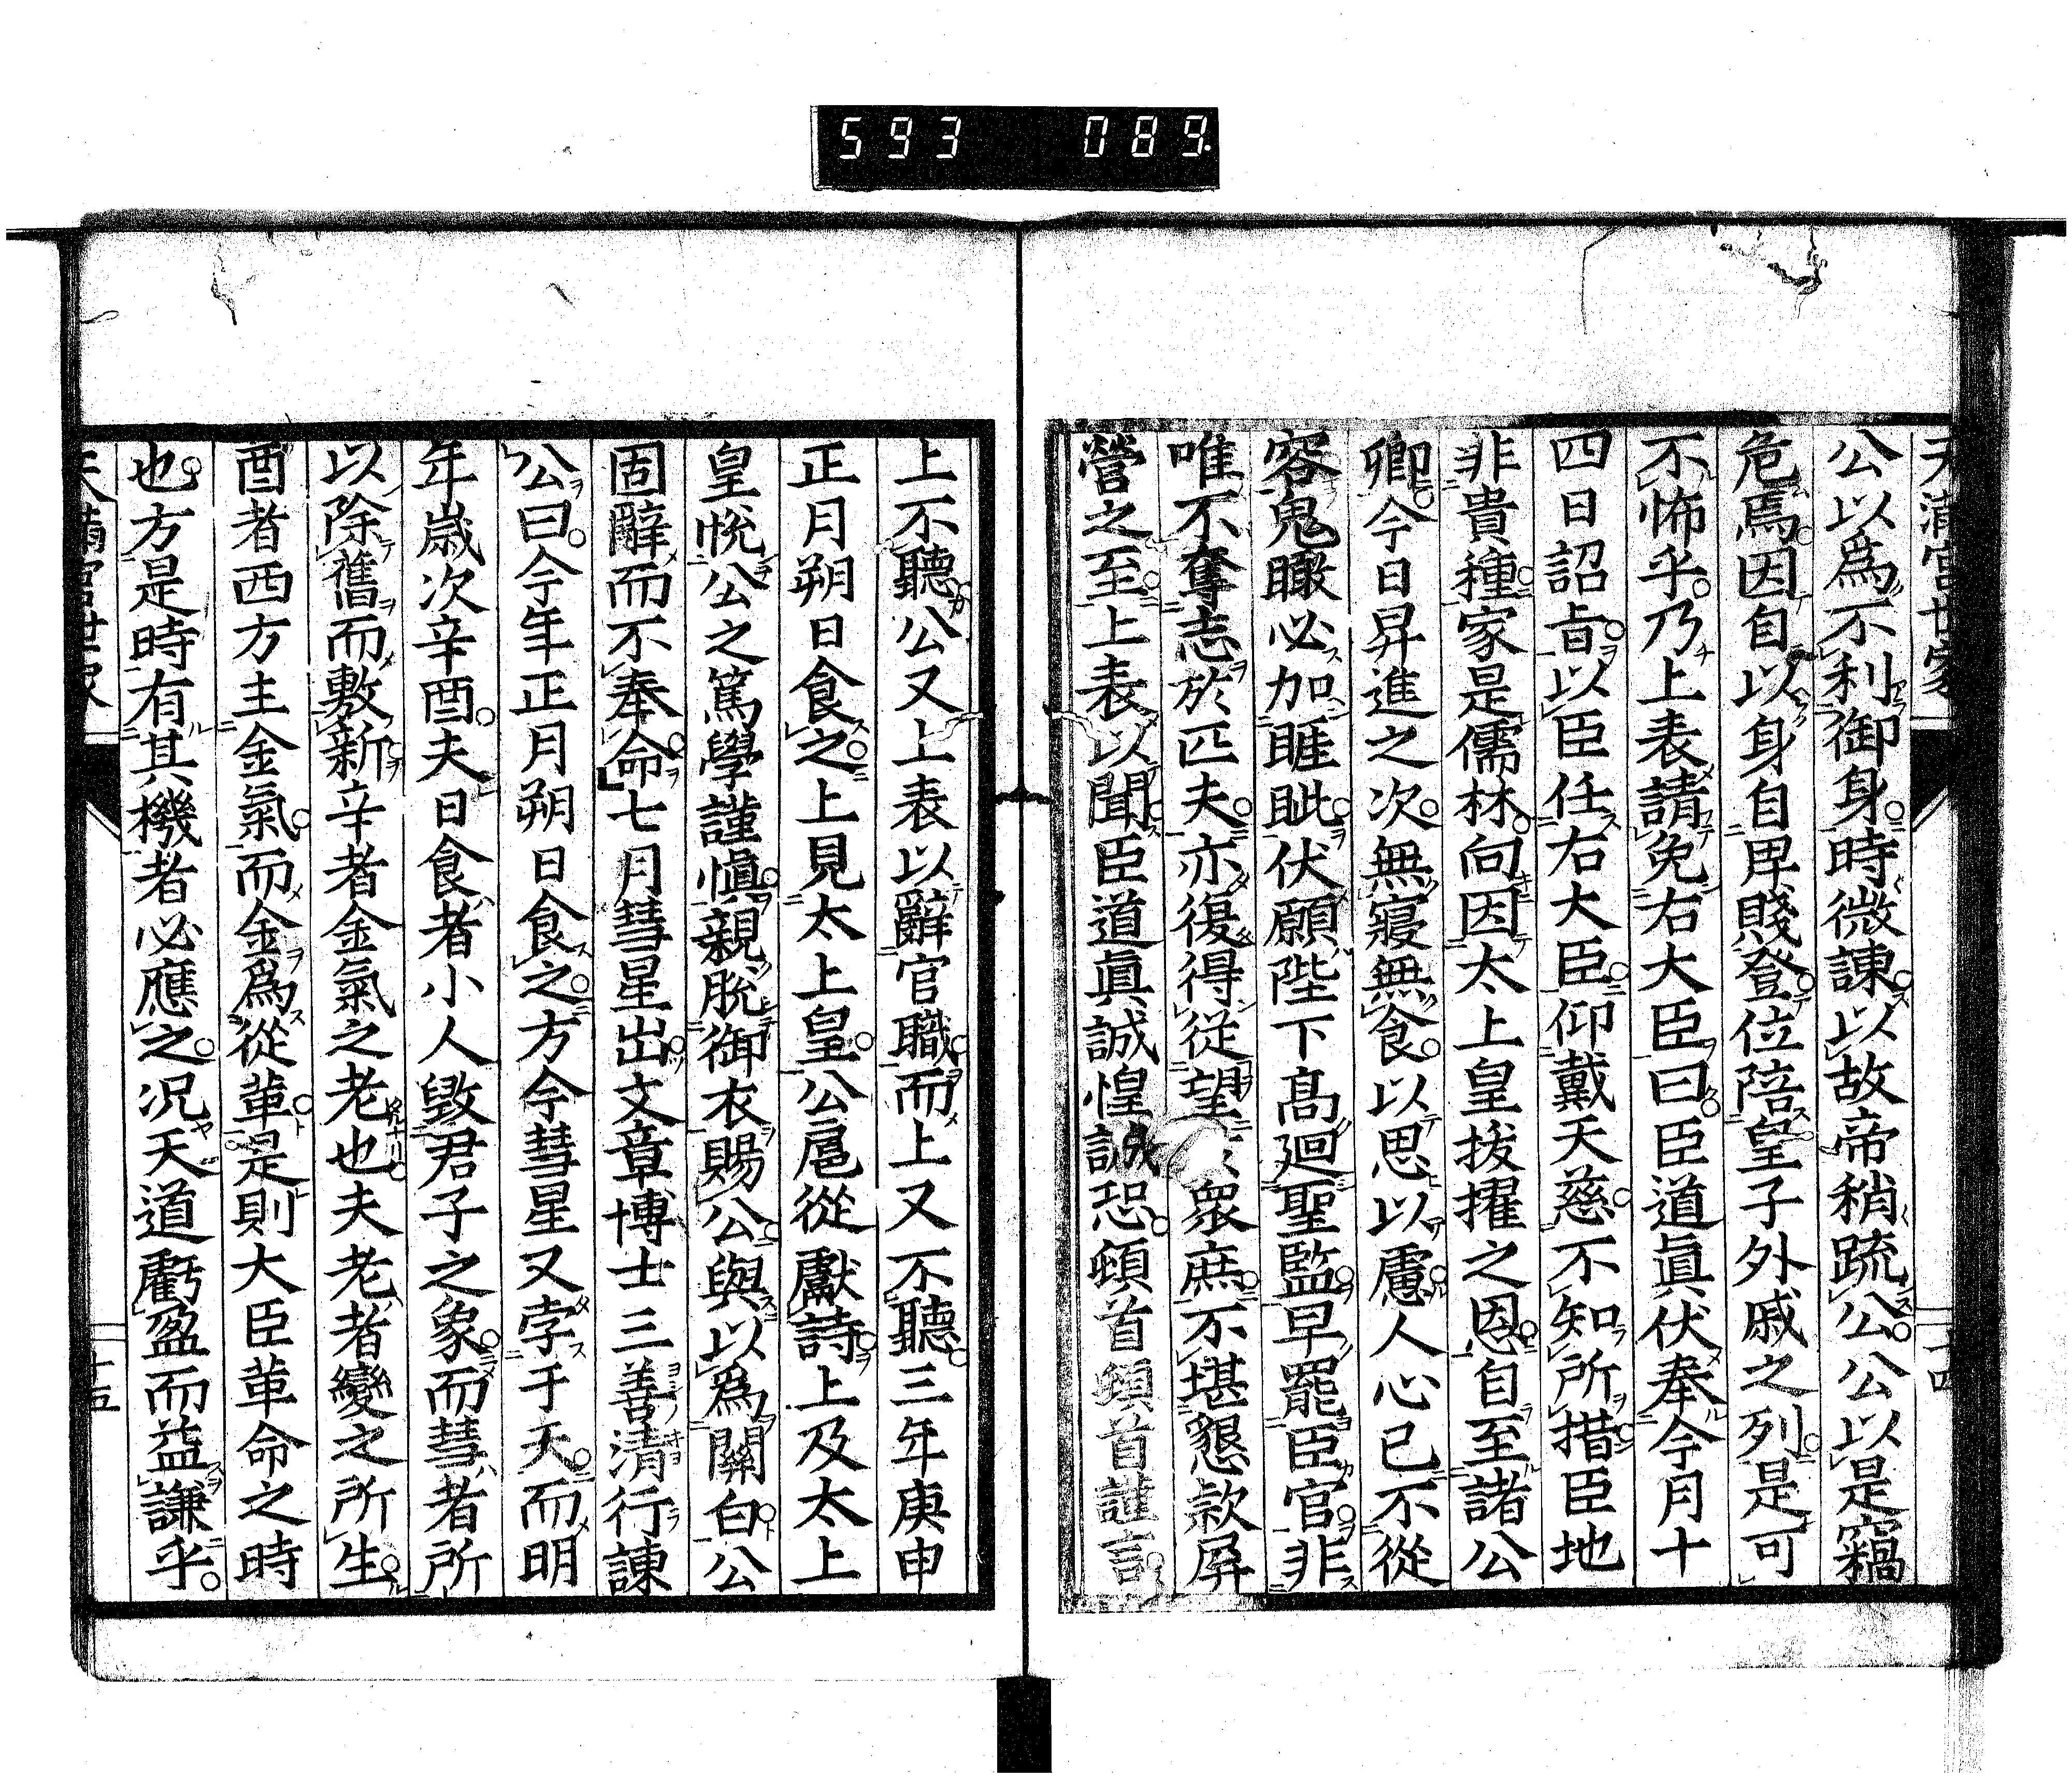 593 089
天滿宮世家 十四
公以爲不利御身時微諌以故帝稍疏公公以是竊
危焉因自以身自卑賤登位陪皇子外戚之列是可
不怖乎乃上表請免右大臣曰臣道眞伏奉今月十
四日詔旨以臣任右大臣仰戴天慈不知所措臣地
非貴種家是儒林向因太上皇拔擢之恩自至諸公
卿今日昇進之次無寢無食以思以慮人心已不從
容鬼瞰必加睚眦伏願陛下髙廻聖監早罷臣官非
唯不奪志於匹夫亦復得從望衆庶不堪懇款屏
營之至上表以聞臣道眞誠惶誠恐頓首頓首謹言
上不聽公又上表以辭官職而上又不聽三年庚申
正月朔日食之上見太上皇公扈從獻詩上及太上
皇悅公之篤學謹愼親脫御衣賜公與以爲關白公
固辭而不奉命七月彗星出文章博士三善清行諌
公曰今年正月朔日食之方今彗星又孛于天而明
年歳次辛酉夫日食者小人毀君子之象而彗者所
以除舊而敷新辛者金氣之老也夫老者變之所生
酉者西方主金氣而金爲從革是則大臣革命之時
也方是時有其機者必應之况天道虧盈而益謙乎
天滿宮世家 十五